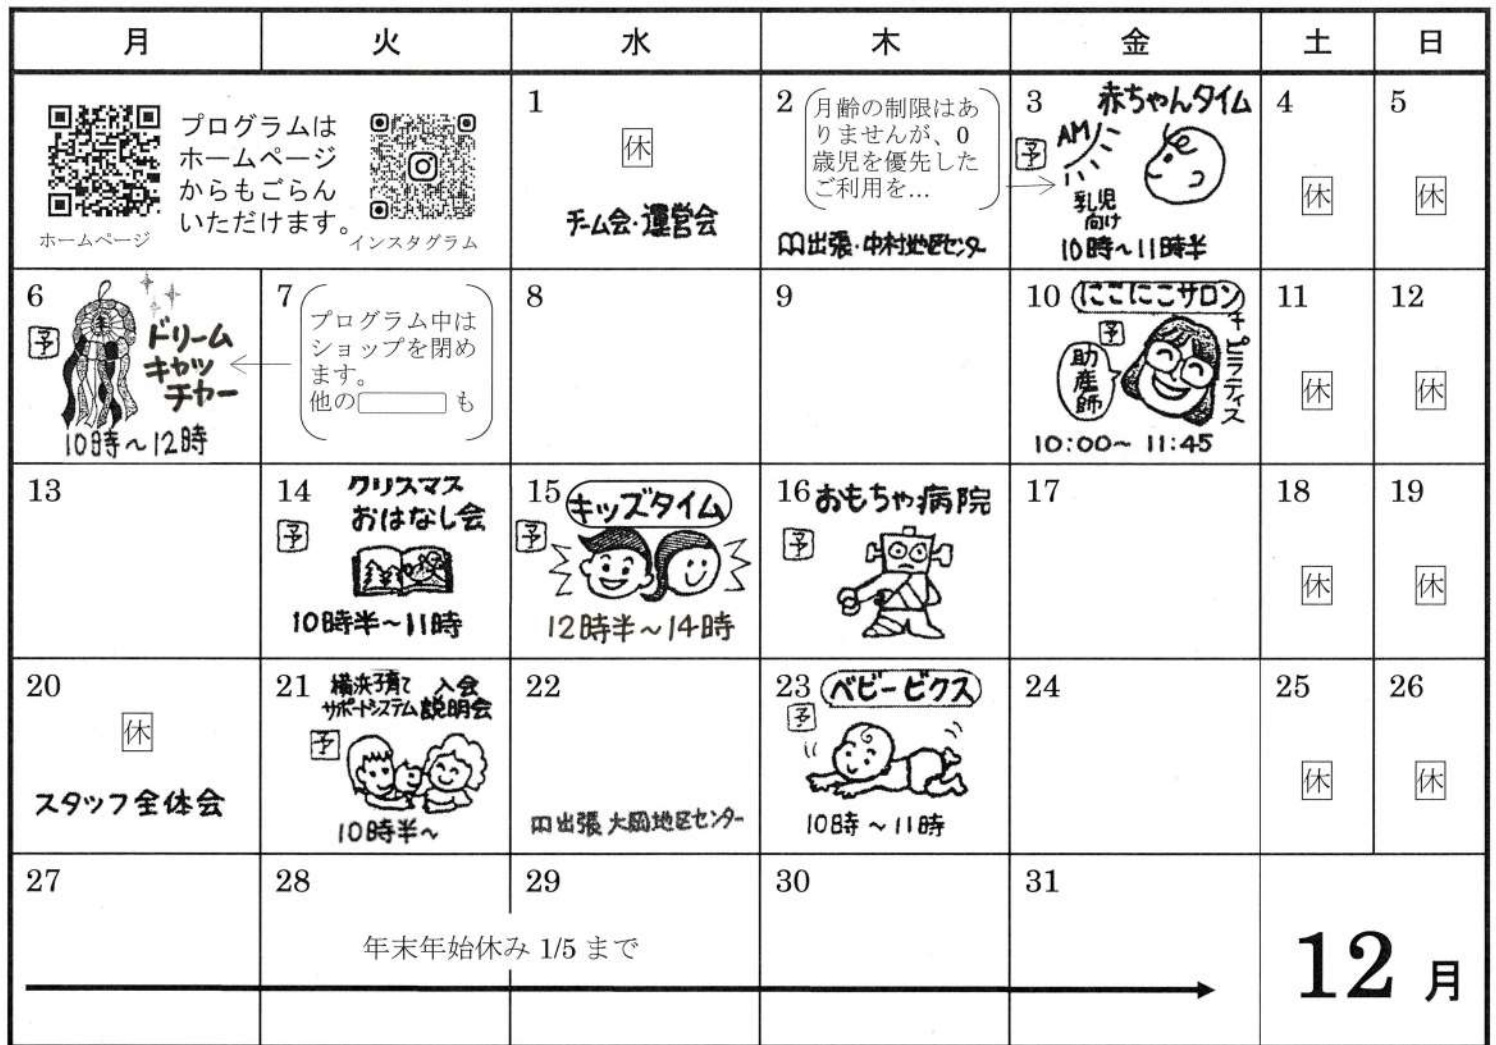 月 火 水 木 金 土 日
プログラムは
ホームページ
からもごらん
いただけます。
ホームページ
インスタグラム
1
休
チーム会・運営会
2
月齢の制限はあ
りませんが、0
歳児を優先した
ご利用を…
出張・中村地区センター
3
赤ちゃんタイム
予
AM
乳児
向け
10時~11時半
4
休
5
休
6
予
ドリーム
キャッ
チャー
10時~12時
7
プログラム中は
ショップを閉め
ます。
他の も
8
9
10
にこにこサロン
予
助産師
チョピラティス
10:00~ 11:45
11
休
12
休
13
14
クリスマス
おはなし会
予
10時半~11時
15
キッズタイム
予
12時半~14時
16
おもちゃ病院
予
17
18
休
19
休
20
休
スタッフ全体会
21
横浜子育て 入会
サポートシステム 説明会
予
10時半~
22
出張 大岡地区センター
23
ベビービクス
予
10時~11時
24
25
休
26
休
27
28
29
30
31
年末年始休み 1/5 まで
12月